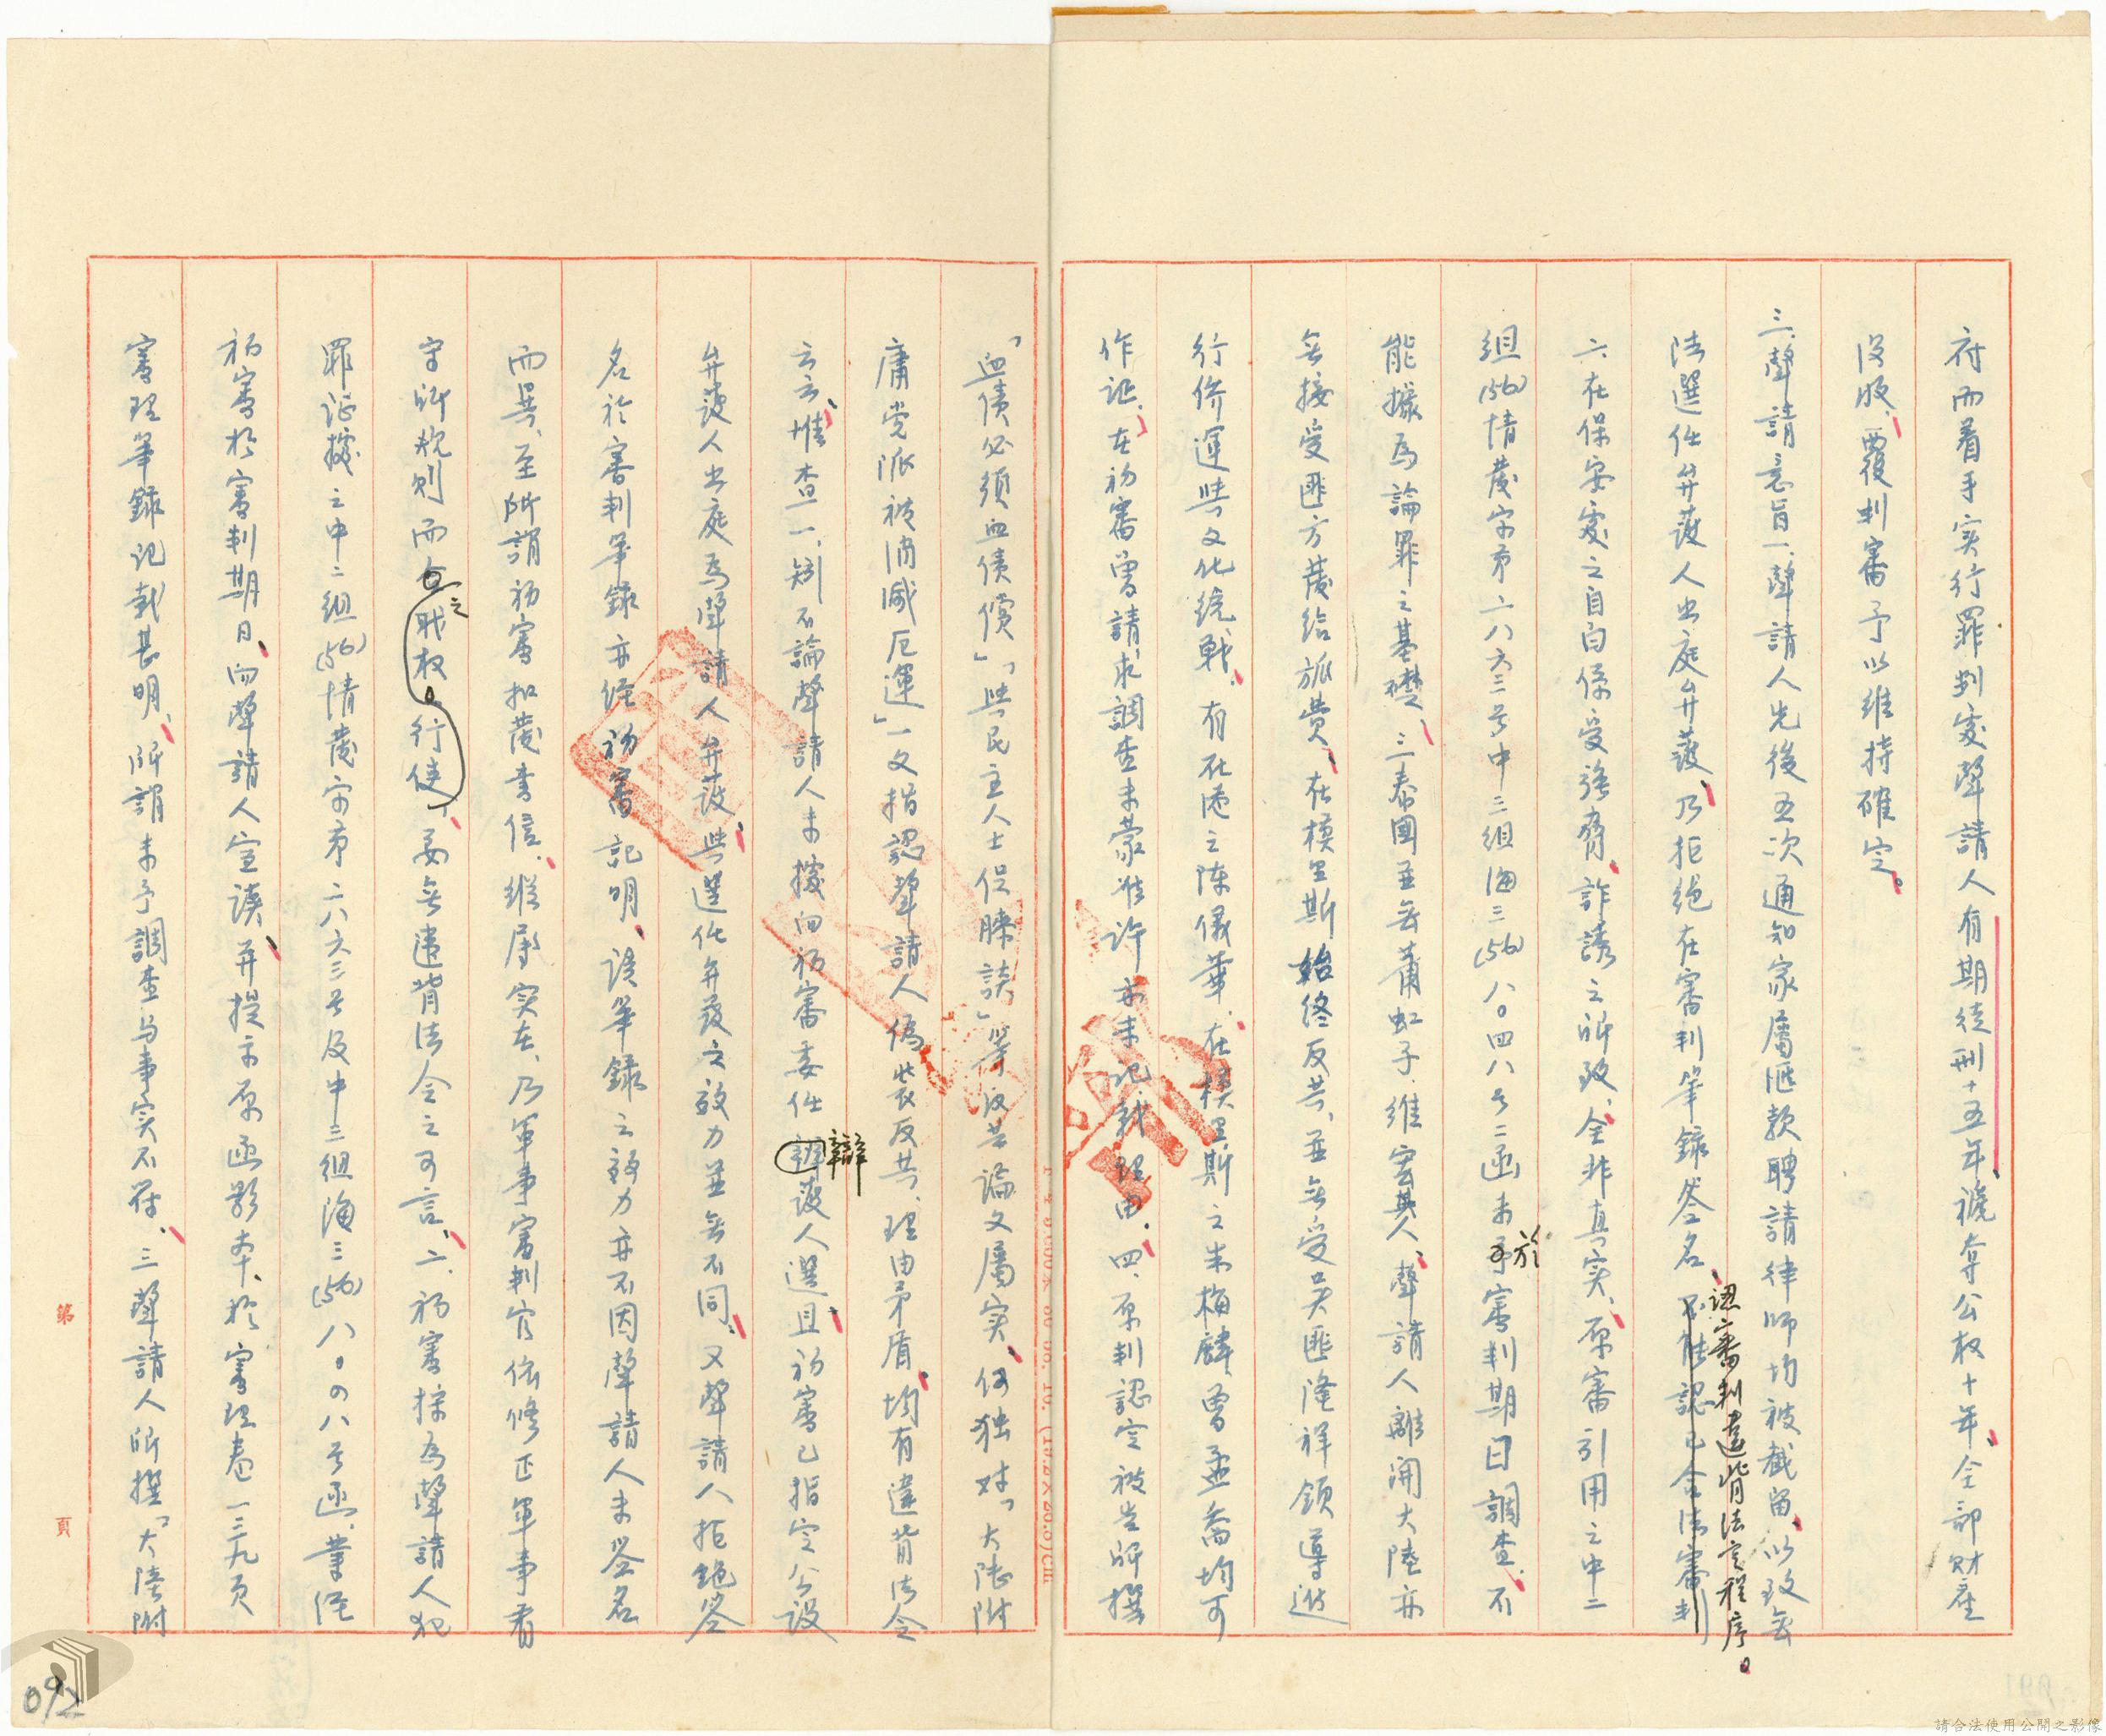 府而着手实行罪判處聲請人有期徒刑十五年、褫奪公权十年、全部财產
没收、覆判審予以維持確定。
三、聲請意旨一、聲請人先後五次通知家屬滙款聘請律師均被截留、以致無
法選任弁護人出庭弁護、乃拒绝在審判筆錄簽名、不能認已合法審判
認審判違背法定程序。
二、在保安處之自白係受強脅、詐誘之所致、全非真实、原審引用之中二
組(56)情黄字第六八六三号中三組海三(56)八〇四八号二函未予於審判期日調查、不
能據為論罪之基礎、三泰國並無蕭虹子、維宏其人、聲請人離開大陸亦
無接受匪方黄给旅費、在模里斯始终反共、並無受吴匪隆祥領導進
行侨運與文化統戰、有在港之陳儀華、在模里斯之朱梅麟、曾孟喬均可
作証、在初審曾請求調查未蒙准許亦未記載理由、四、原判認定被告所撰
「血债必须血债償」「與民主人士促膝談」等反共論文屬实、何独对「大陸附
庸党派被消滅厄運」一文指認聲請人偽装反共、理由矛盾、均有違背法令
云云、惟查一、無論聲請人未據向初審委任辯護人選且初審已指定公設
辯
弁護人出庭為聲請人弁護、與選任弁護之效力並無不同、又聲請人拒絕签
名於審判筆錄亦經初審記明、該筆錄之効力亦不因聲請人未签名
而異、至所謂初審扣發書信、縱屬实在、乃軍事審判官依修正軍事看
守所規則而之职权行使、要無違背法令之可言、二、初審採為聲請人犯
之
罪証據之中二組(56)情黄字第六八六三号及中三組海三(56)八〇四八号函、業经
初審於審判期日、向聲請人宣读、并提示原函影本、於審理卷一三九頁
審理筆錄記載甚明、所謂未予調查与事实不符、三聲請人所撰「大陸附
第 頁
092
請合法使用公開之影像